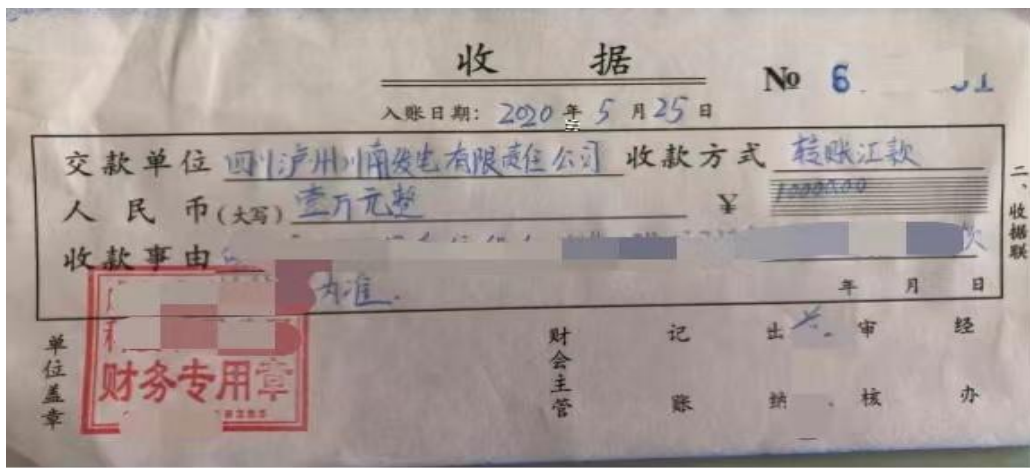 收 据
№ 6
入账日期: 2020 年 5 月 25 日
交款单位 四川泸州川南发电有限责任公司 收款方式 转账汇款
人民币(大写) 壹万元整 ¥ 1000000
收款事由 款
为准.
年 月 日
二、收据联
单位盖章
财务专用章
财会主管 记账 出纳 审核 经办